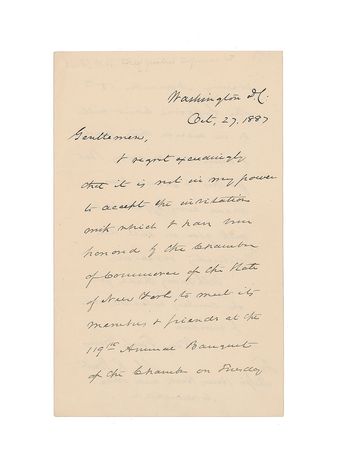 Washington D.C.
Oct, 27, 1887
Gentlemen,
I regret exceedingly
that it is not in my power
to accept the invitation
with which I have been
honored by the Chamber
of Commerce of the State
of New York, to meet its
members & friends at the
119th Annual Banquet
of the Chamber on Tuesday